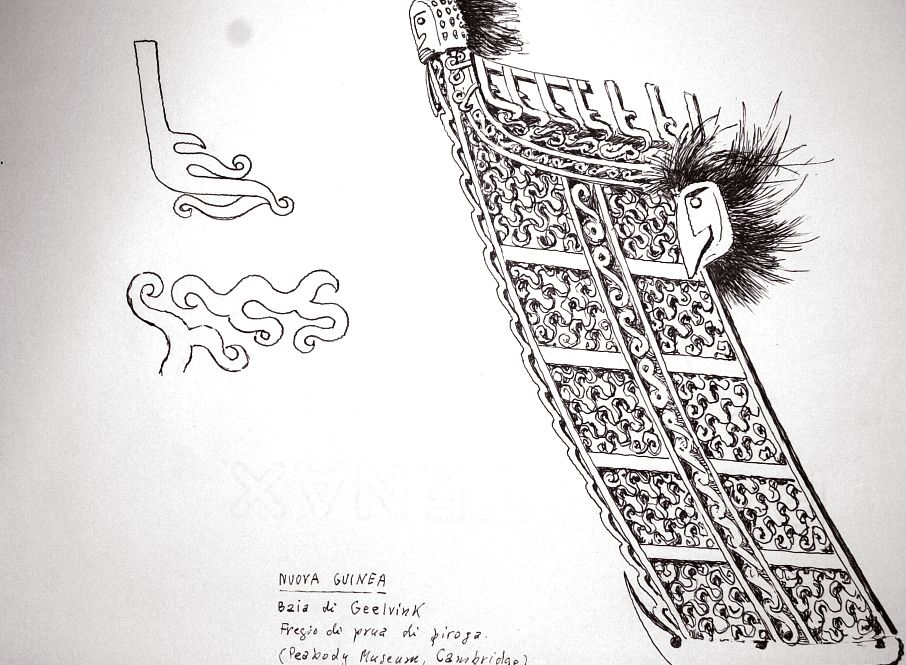 NUOVA GUINEA
Baia di Geelvink
Fregio di prua di piroga.
(Peabody Museum, Cambridge)